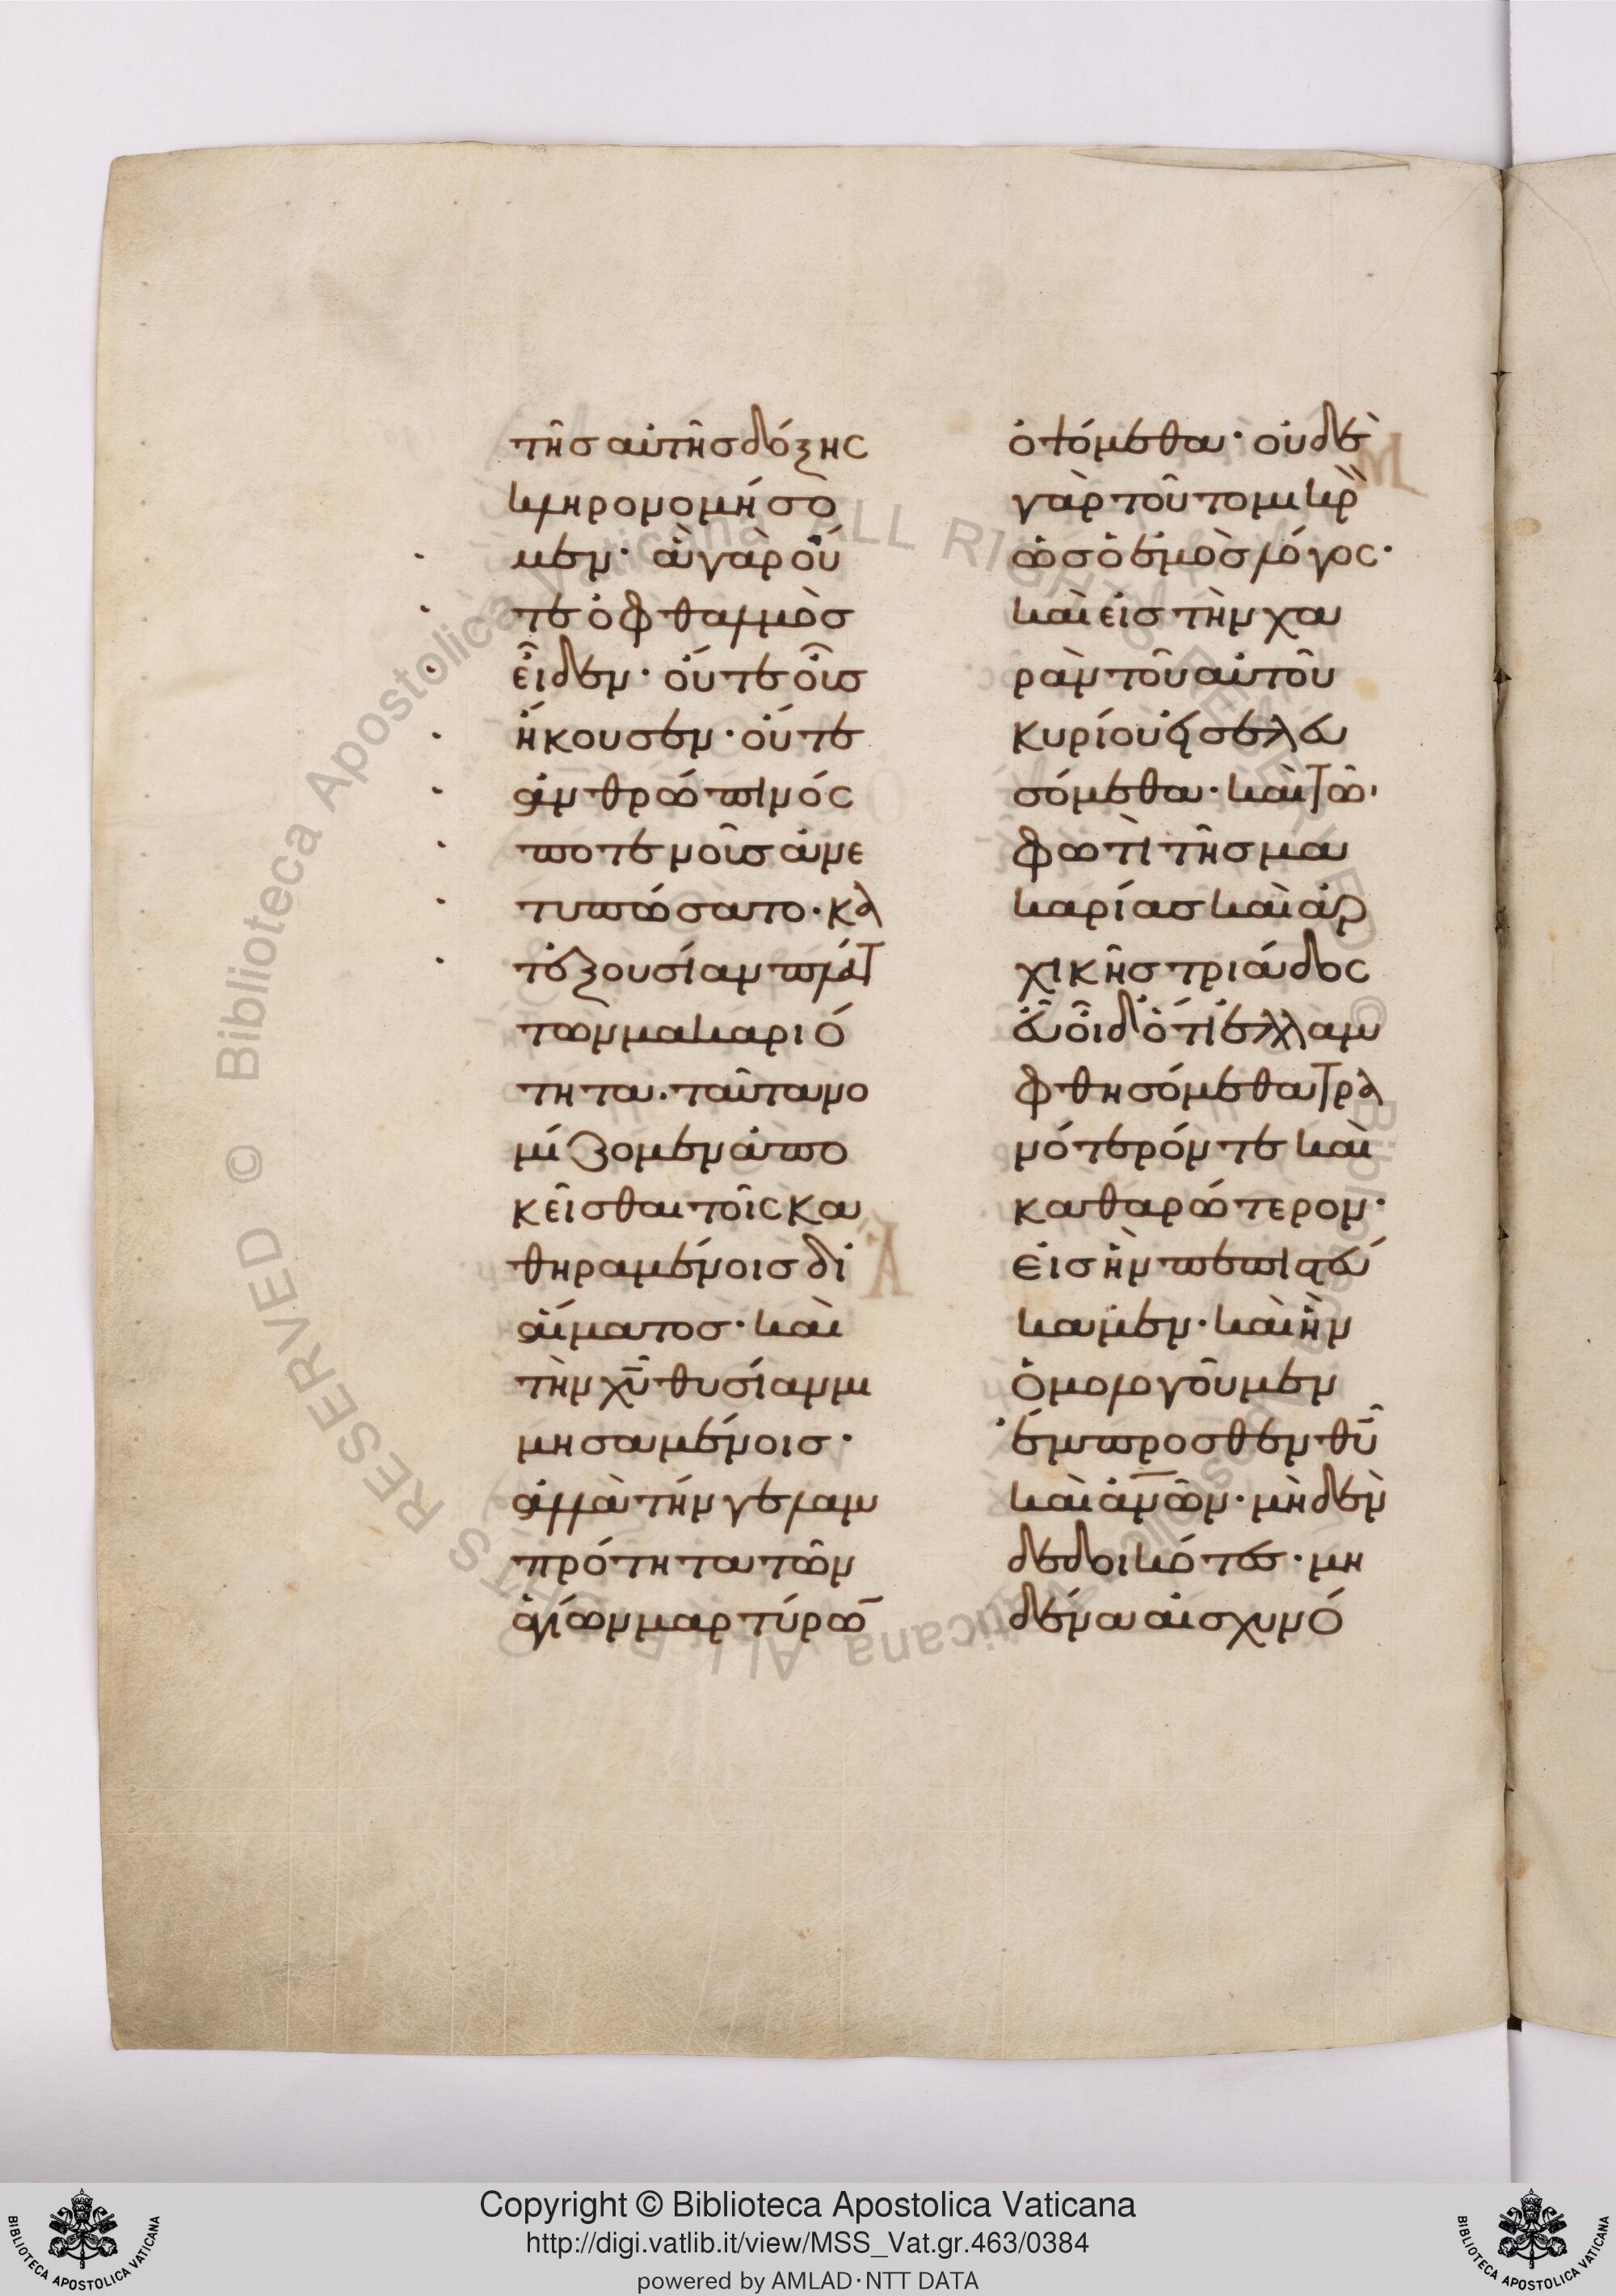 τῆσ αὐτῆσ δόξης
κληρονομήσο
μεν· ἃ γὰρ οὔ
τε ὀφθαλμὸσ
εἶδεν· οὔτε οὖσ
ἤκουσεν· οὔτε
ἀνθρώπινός
ποτε νοῦσ ἀνε
τυπώσατο· κα
τεξουσίαν πλάτ
των μακαριό
τητα. ταῦτα νο
μίζομεν ἀπο
κεῖσθαι τοῖς κα
θηραμένοισ δι
αἵματοσ· καὶ
τὴν χυ θυσίαν μι
μησαμένοισ·
ἀλλὰ τήν γε λαμ
πρότητα τῶν
ἁγίων μαρτύρω
ὀψόμεθα· οὐδὲ
γὰρ τοῦτο μικρὸ
ὡσ ὁ ἐμὸσ λόγος·
καὶ εἰσ τὴν χα
ρὰν τοῦ αὐτοῦ
κυρίου ἐσελευ
σόμεθα· καὶ τῶ
φωτὶ τῆσ μα
καρίασ καὶ ἀρ
χικῆσ τριάδος
εὖ οἶδ' ὅτι ἐλλαμ
φθησόμεθα τρα
νότερόν τε καὶ
καθαρώτερον·
εἰσ ἣν πεπιστεύ
καμεν· καὶ ἣν
ὁμολογοῦμεν
ἔμπροσθεν θυ
καὶ ἀνων· μηδὲν
δεδοικότεσ· μη
δένα αἰσχυνό
Copyright © Biblioteca Apostolica Vaticana
http://digi.vatlib.it/view/MSS_Vat.gr.463/0384
powered by AMLAD·NTT DATA